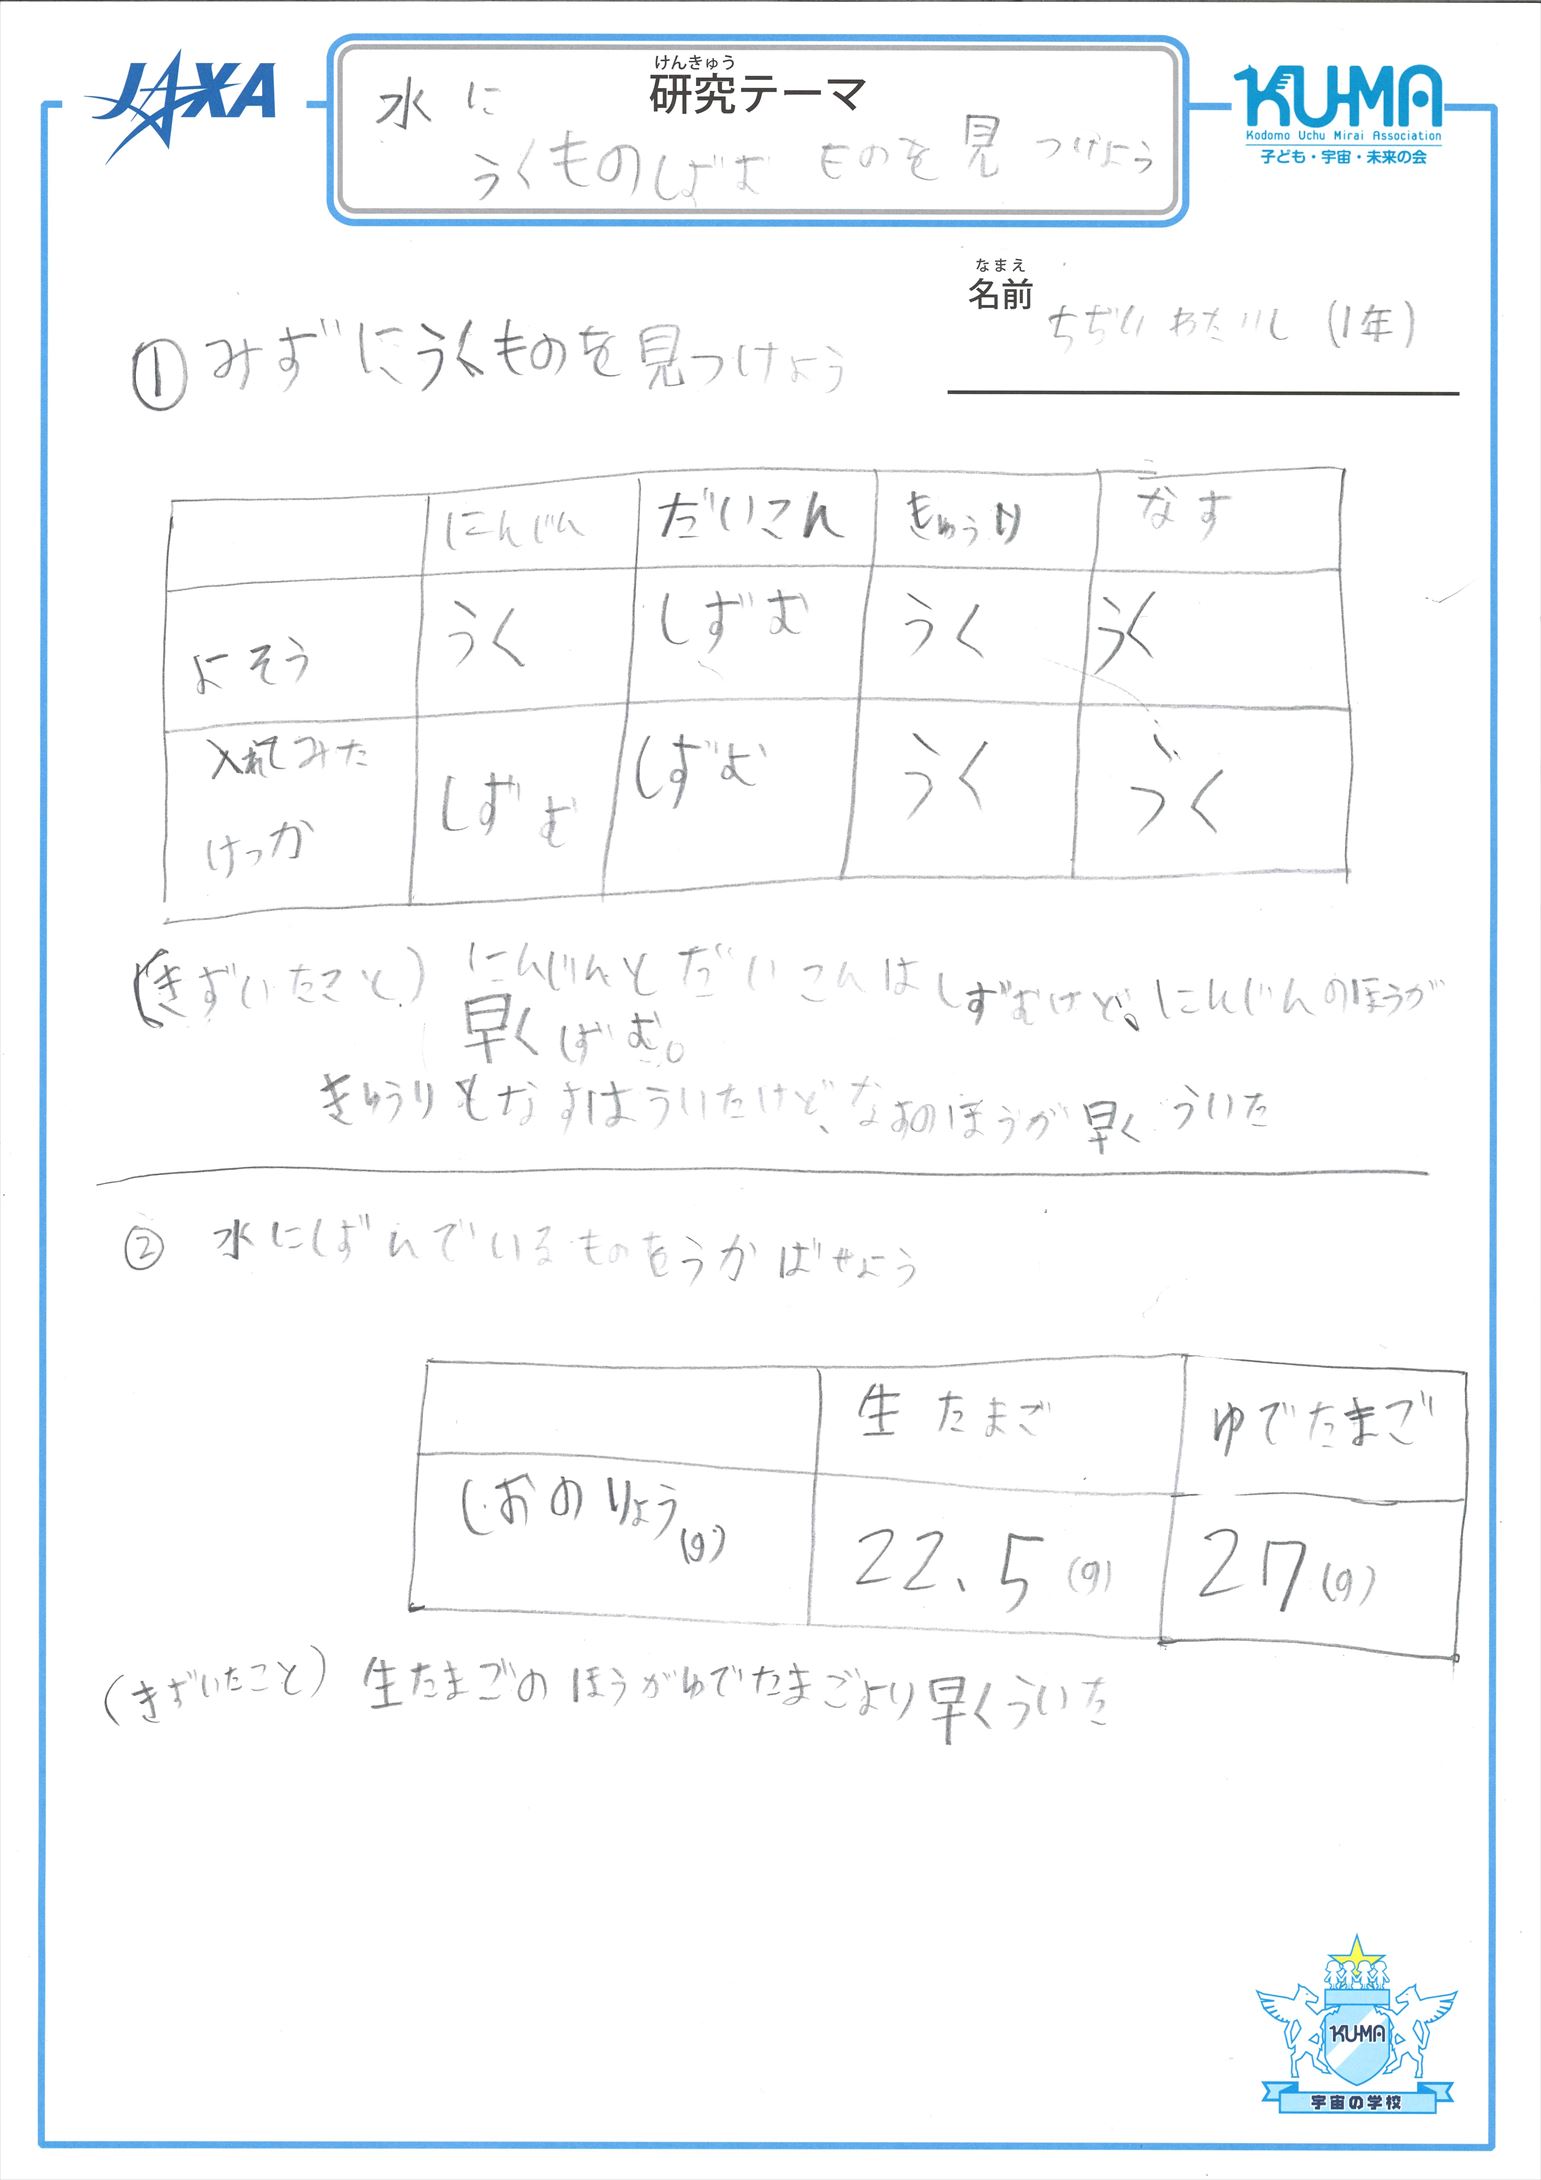 JAXA
けんきゅう
研究テーマ
水に
うくものしずむ ものを見つけよう
KU-MA
Kodomo Uchu Mirai Association
子ども・宇宙・未来の会
なまえ
名前
(1年)
①みずにうくものを見つけよう
にんじん だいこん きゅうり なす
よそう うく しずむ うく うく
入れてみた
けっか しずむ しずむ うく うく
(きずいたこと) にんじんと だいこんは しずむけど。にんじんのほうが
早くしずむ。
きゅうりもなすはういたけど、なすのほうが早くういた
② 水にしずんでいるものをうかばせよう
生たまご ゆでたまご
しおのりょう(g) 22.5(g) 27(g)
(きずいたこと) 生たまごのほうがゆでたまごより早くういた
KU-MA
宇宙の学校